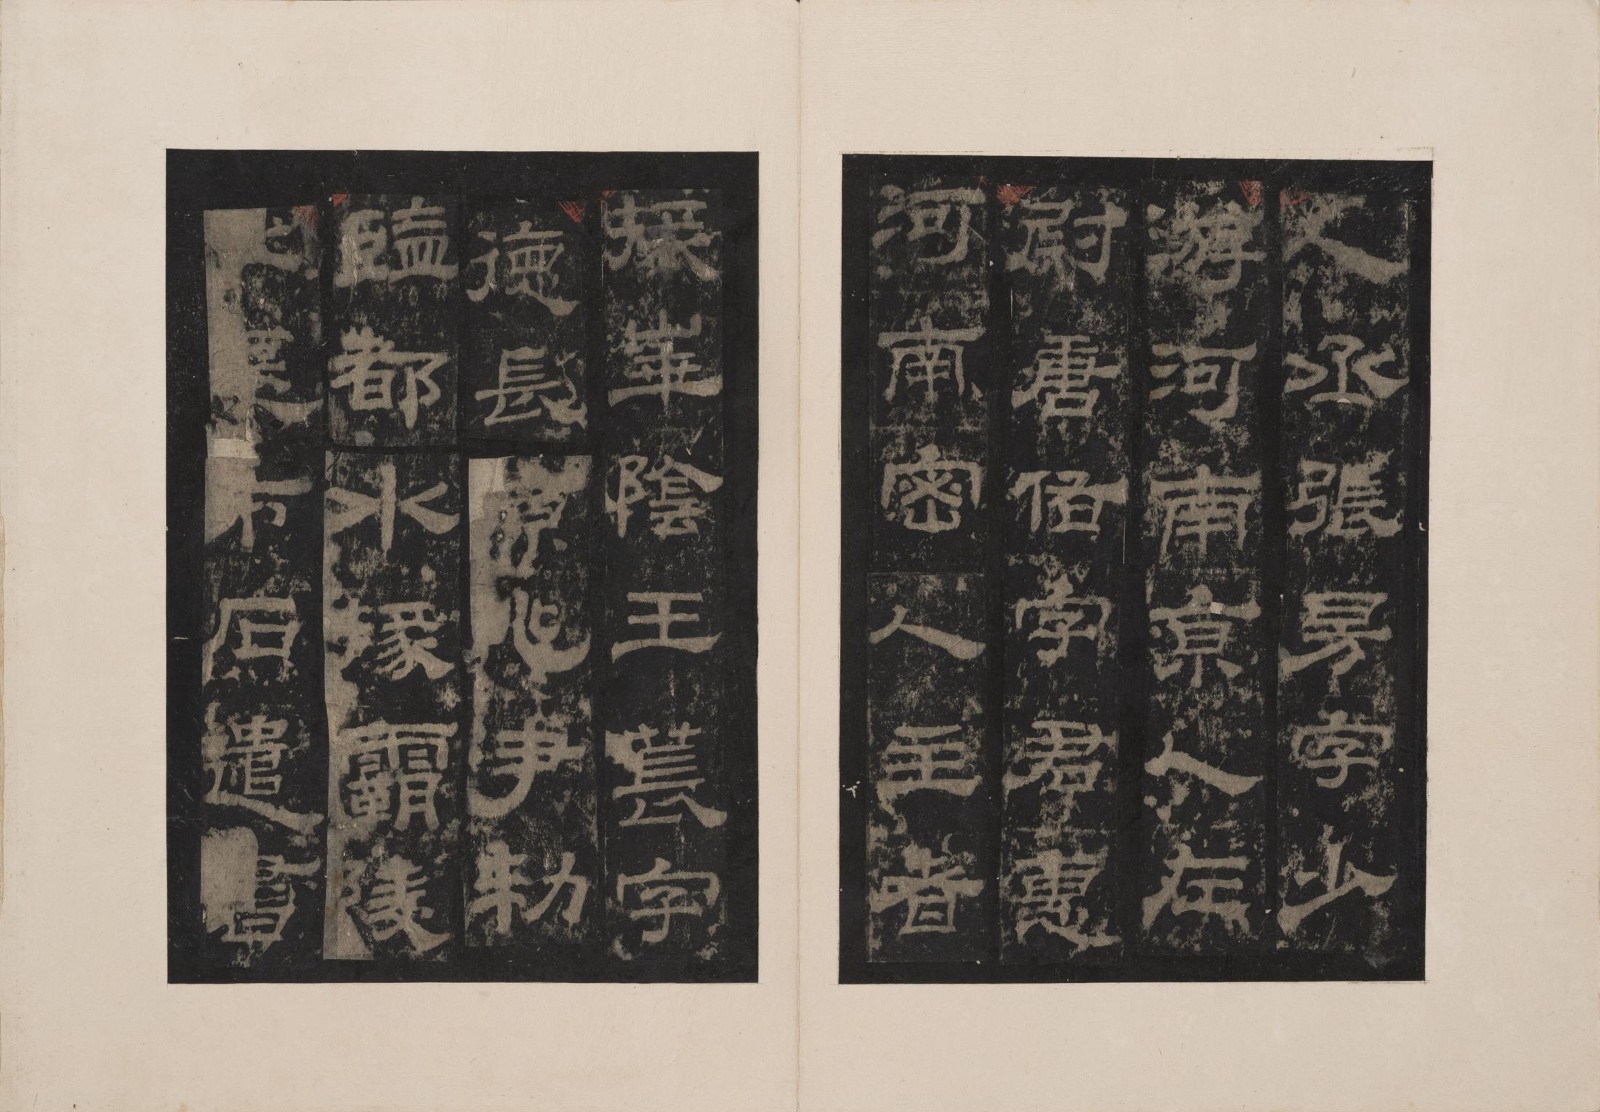 人丞張昉字少
游河南京人左
尉唐佑字君惠
河南密人主者
掾華陰王萇字
德長京兆尹勑
監都水掾霸陵
杜遷市石遣書